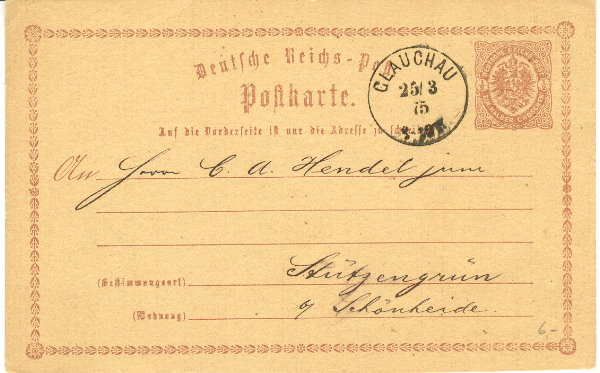 Deutsche Reichs-Post
Postkarte.
GLAUCHAU
25/3
75
Auf die Vorderseite ist nur die Adresse zu
An Herrn C. A. Hendel jun.
(Bestimmungsort) Stützengrün
(Wohnung) b/ Schönheide.
6-